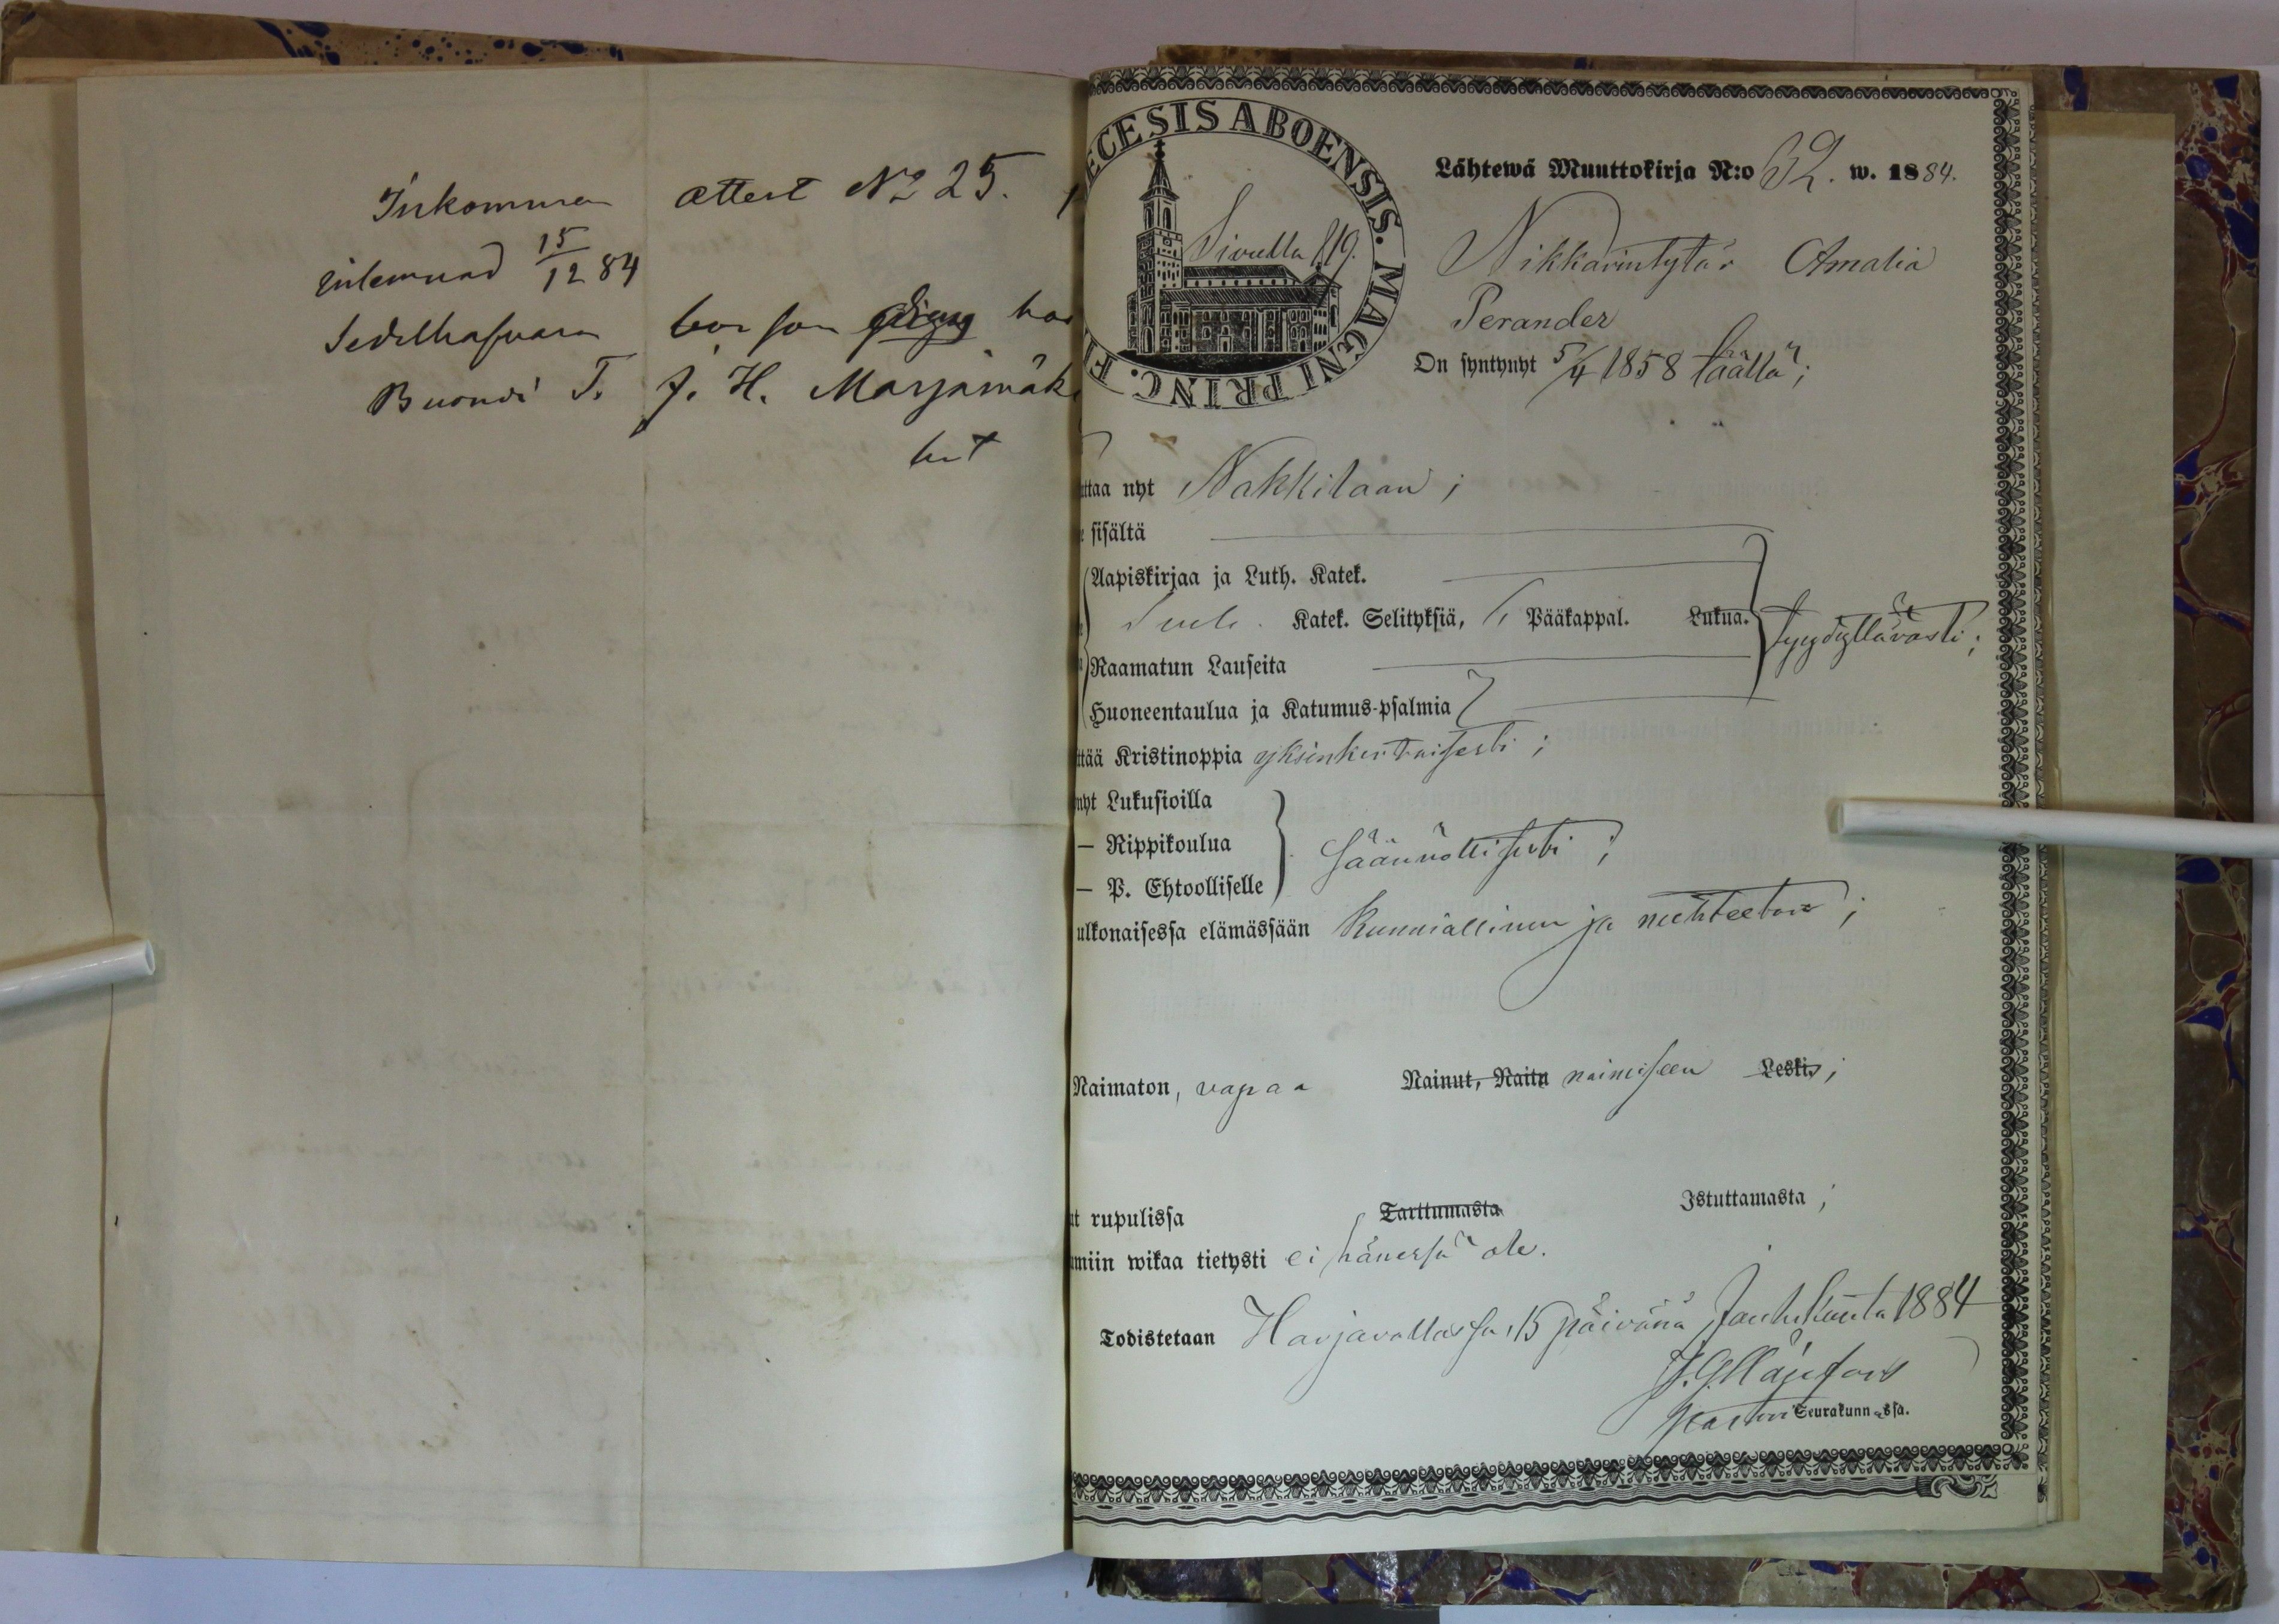 Inkommen attest No 25.
inlemnad 15/12 84
Sedelhafvaren bor som piga hos
Buondi T. J. H. Marjamäk
ECESIS ABOENSIS. MAGNI PRINC. F
Sivulla 119.
Lähtewä Muuttokirja N:o 62. w. 1884.
Nikkarintytär Amalia
Perander
On syntynyt 5/4 1858 täällä;
ttaa nyt Nakkilaan;
sisältä
Aapiskirjaa ja Luth. Katek.
Katek. Selityksiä, Pääkappal. Lukua. tyydyttävästi;
Raamatun Lauseita
Huoneentaulua ja Katumus-psalmia
ttää Kristinoppia yksinkertaisesti;
nyt Lukusioilla
— Rippikoulua säännöllisesti;
— P. Ehtoolliselle
ulkonaisessa elämässään kunniallinen ja nuhteeton;
Naimaton, vapaa Nainut, Naitu naimiseen Leski;
t rupulissa Tarttumasta Istuttamasta;
miin wikaa tietysti ei hänessä ole.
Todistetaan Harjavallassa, 15 päivänä Joulukuuta 1884
pastori Seurakunn=ssa.